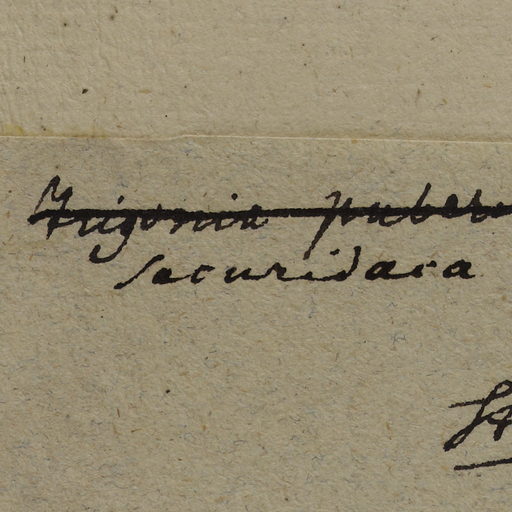 Trigonia pube
securidaca